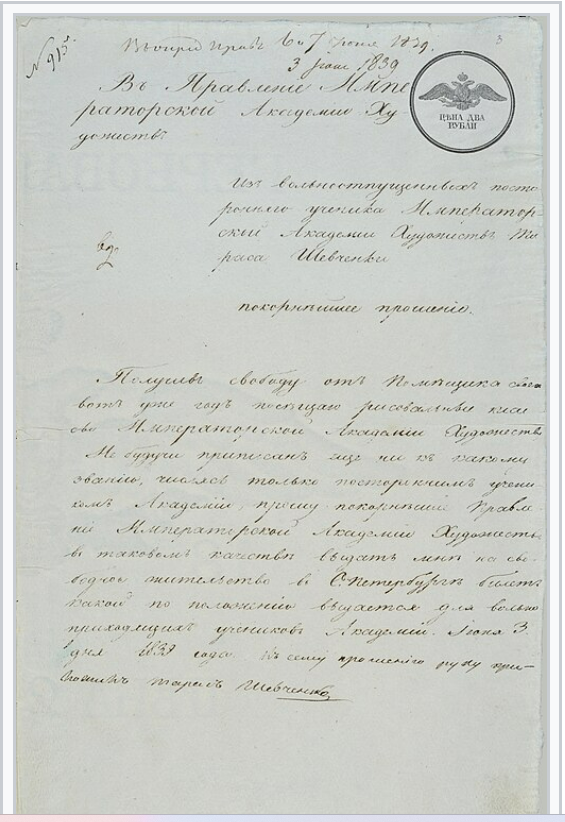 № 915.
6 и 7 июня 1839.
3 июня 1839
3
Въ Правленіе Импе-
раторской Академіи Ху-
дожествъ
ЦѢНА ДВА
РУБЛИ
Изъ вольноотпущенныхъ посто-
ронняго ученика Император-
ской Академіи Художествъ Та-
раса Шевченки
покорнѣйшее прошеніе.
Получивъ свободу отъ Помѣщика своего
вотъ уже годъ посѣщаю рисовальные клас-
сы Императорской Академіи Художествъ
Не будучи приписанъ еще ни къ какому
званію, числясь только постороннимъ учени-
комъ Академіи, прошу покорнѣйше Правле-
ніе Императорской Академіи Художествъ
въ таковомъ качествѣ выдать мнѣ на сво-
бодное жительство в С.Петербургѣ билетъ
какой по положенію выдается для вольно
приходящихъ учениковъ Академіи. Іюня 3.
дня 1839 года. Къ сему прошенію руку при-
ложилъ Тарасъ Шевченко